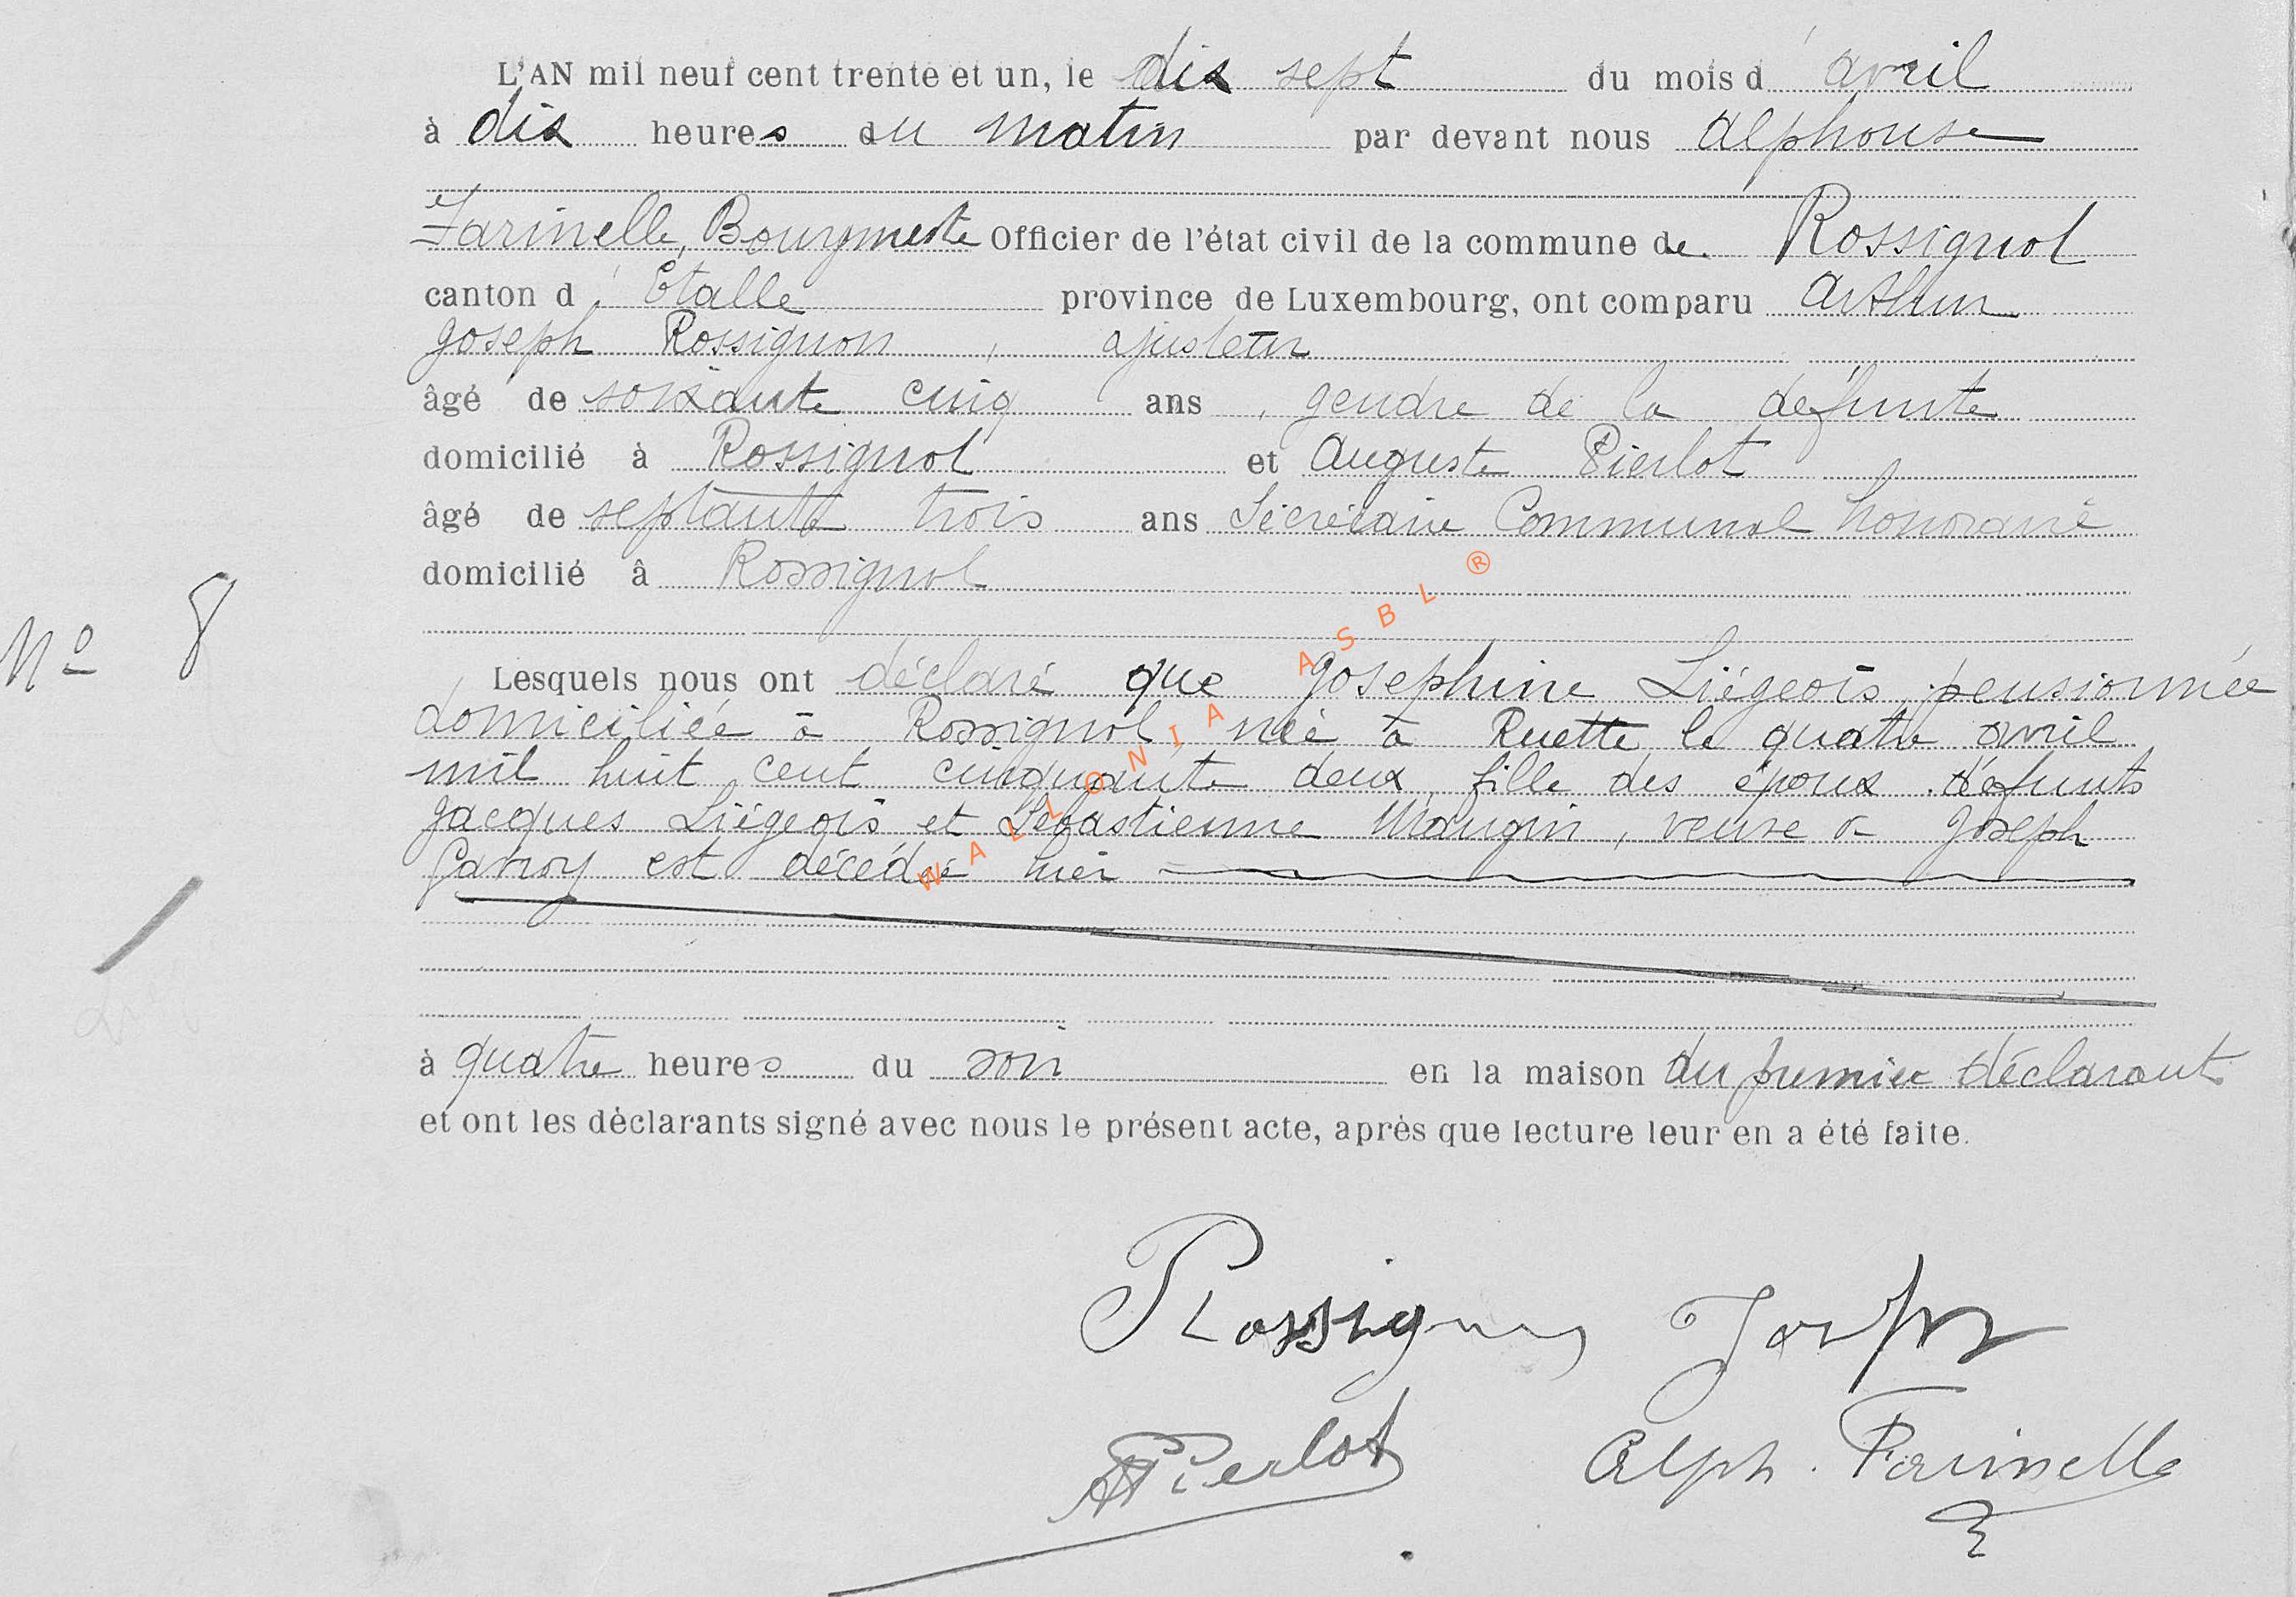 L'AN mil neuf cent trente et un, le dix sept du mois d'avril
à dix heures du matin par devant nous Alphonse
Farinelle, Bourgmestre Officier de l'état civil de la commune de Rossignol
canton d'Étalle province de Luxembourg, ont comparu Arthur
Joseph Rossignon, ajusteur
âgé de soixante cinq ans, gendre de la défunte
domicilié à Rossignol et Auguste Pierlot
âgé de septante trois ans Secrétaire Communal honoraire
domicilié à Rossignol
Nº 8
Lesquels nous ont déclaré que Joséphine Liégeois, pensionnée
domiciliée à Rossignol née à Ruette le quatre avril
mil huit cent cinquante deux, fille des époux défunts
Jacques Liégeois et Sébastienne Maugin, veuve de Joseph
Gavroy est décédée hier
à quatre heures du soir en la maison du premier déclarant
et ont les déclarants signé avec nous le présent acte, après que lecture leur en a été faite.
Rossignon Joseph
A Pierlot Alph. Farinelle
WALLONIA ASBL ®